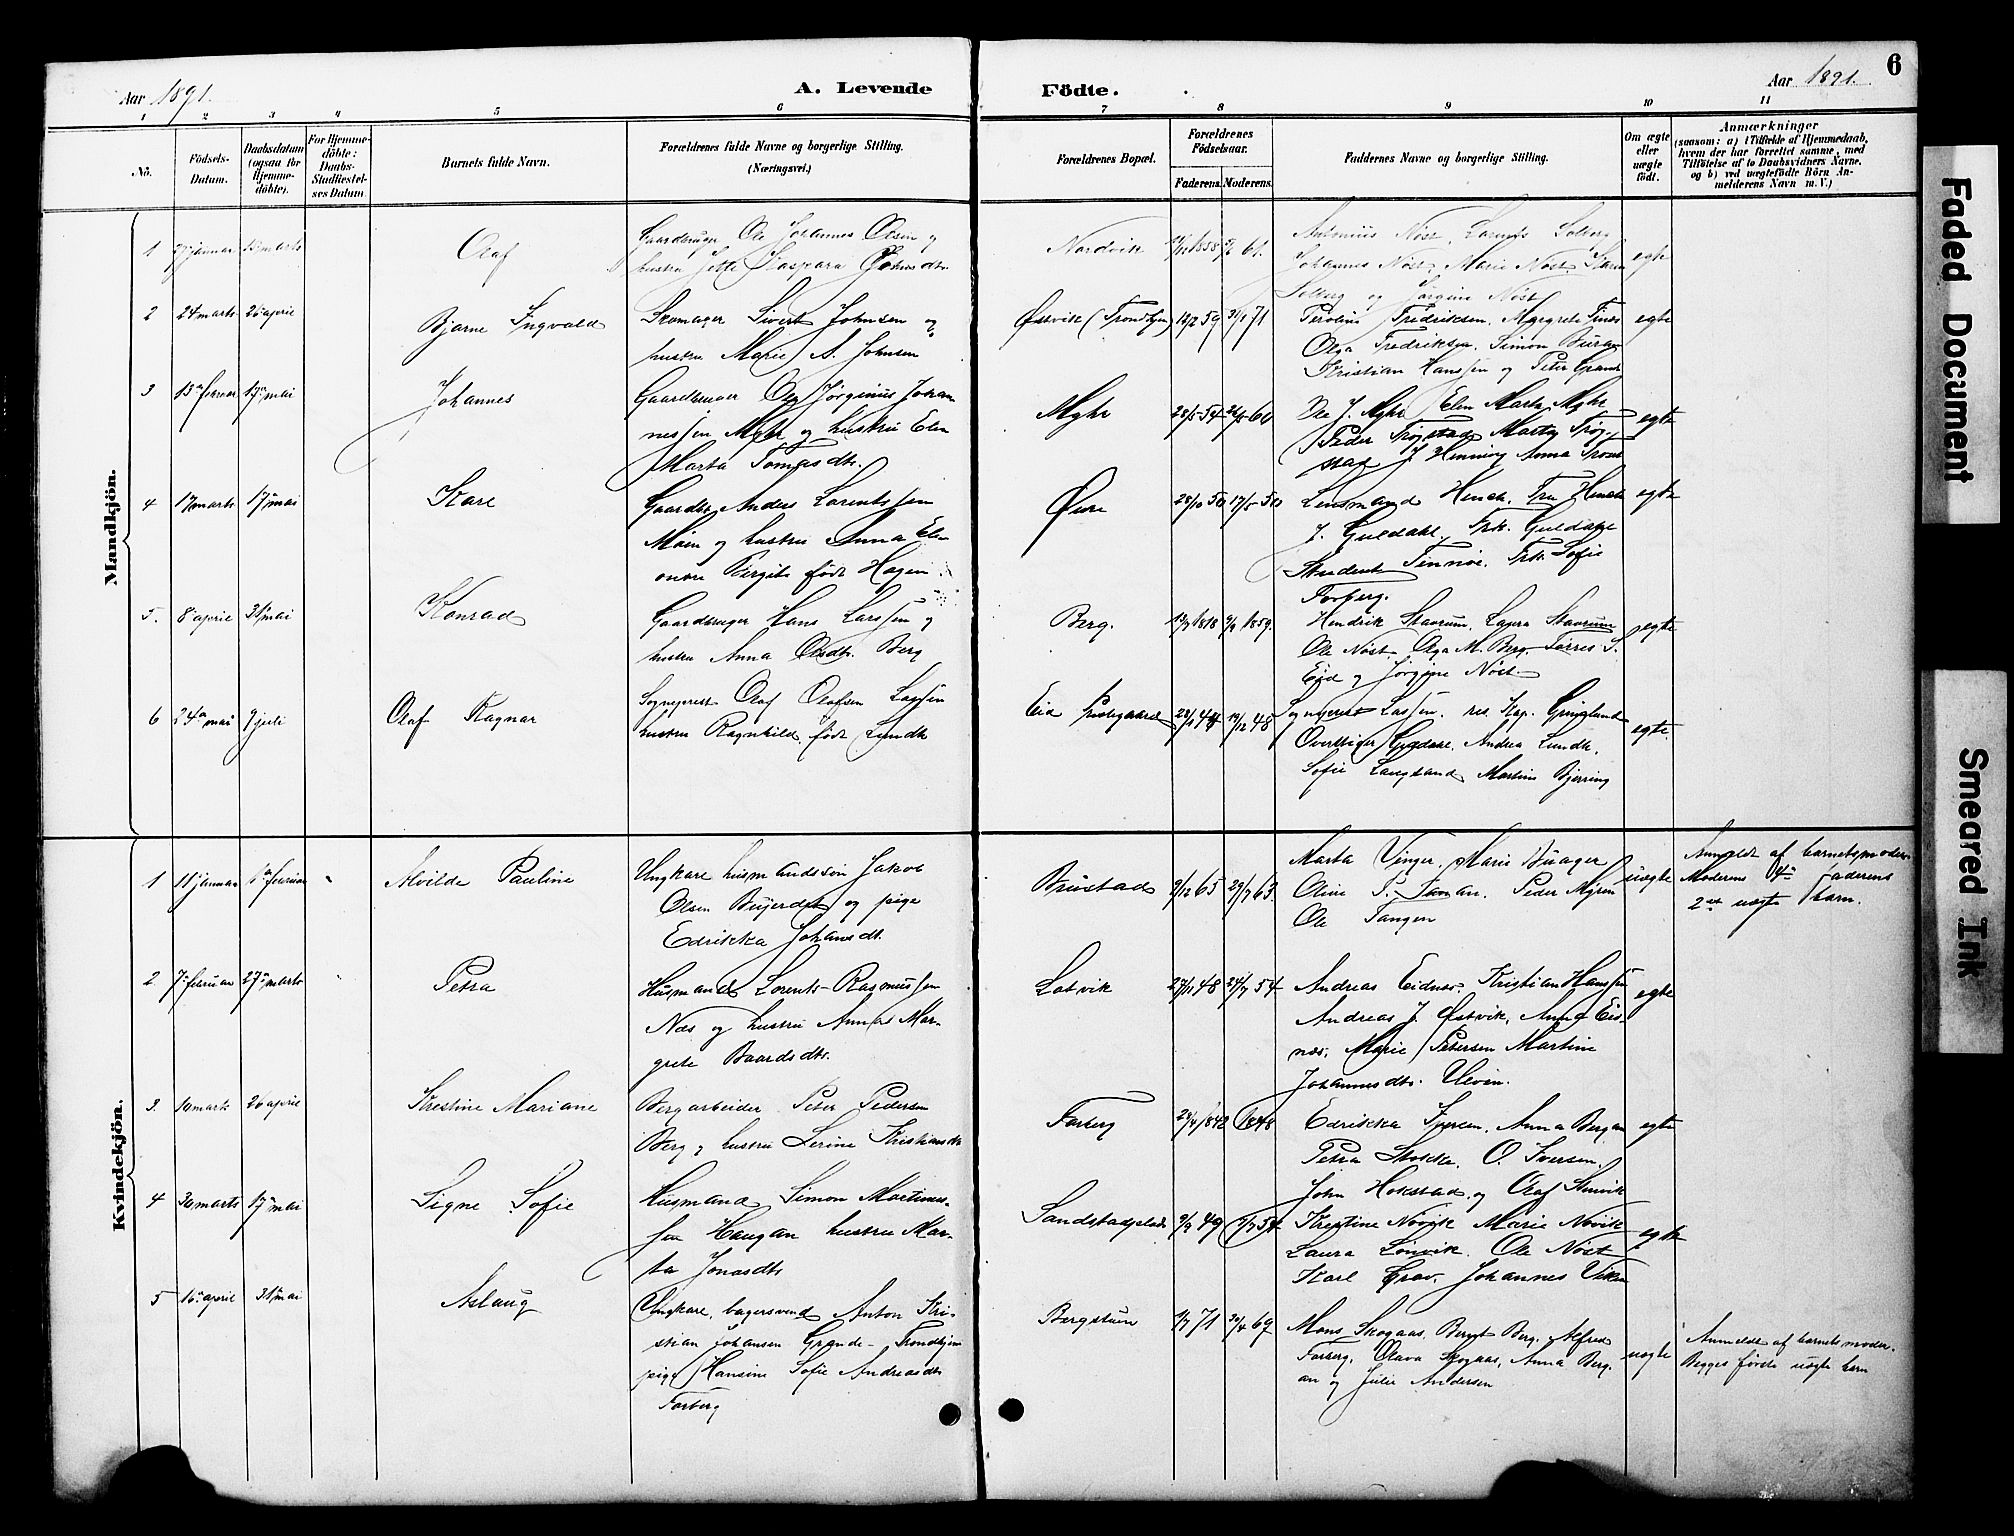 6
Aar 1891.
A. Levende
Födte.
Aar 1891.
1 2 3 4 5 6 7 8 9 10 11
No.
Födsels-
Datum.
Daabsdatum
(ogsaa for
Hjemme-
döbte).
For Hjemme-
döbte:
Daabs-
Stadfæstel-
ses Datum
Barnets fulde Navn.
Forældrenes fulde Navne og borgerlige Stilling.
(Næringsvei.)
Forældrenes Bopæl.
Forældrenes
Födselsaar.
Faderens. Moderens.
Faddernes Navne og borgerlige Stilling.
Om ægte
eller
uægte
födt.
Anmærkninger
(saasom: a) i Tilfælde af Hjemmedaab,
hvem der har forrettet samme, med
Tilföielse af to Daabsvidners Navne,
og b) ved uægtefödte Börn An-
melderens Navn m. V.)
Mandkjön.
1 januar marts
Olaf
Gaardbruger Ole Johannes Olsen og
hustru Jette Kaspara
Nordvik
61.
Antonius Nöst, Lorents Solberg
Johannes Nöst, Marie Nöst, Karen
Solberg og Jörgine Nöst
egte
2 24 marts 26 april
Bjarne Ingvald
Skomager Sivert Johnsen og
hustru Marie A. Johnsen
Østvik (Trondhjem)
18/2 59 71
Petolius Fredriksen, Margrete
Olga Fredriksen, Simon
Kristian Hanssen og Peter Grande
egte
3 15 februar 17 mai
Johannes
Gaardbruger Ole Jörginus Johan
nessen Myhr og hustru Elen
Marta Tomasdtr.
Myhr
28/5 54 60
Ole J. Myhr Elen Marta Myhr
Peder Trøgstad Marta Trøg-
stad J. Henning Anna
egte
4 17 marts 17 mai
Kare
Gaardbr. Anders Lorentssen
Moen og hustru Anna Elen
onore Bergitte født Hagen.
Øvre
28/10 50 17/5 50
Lensmand Henck, Fru Henck
J. Guldahl, Frk. Guldahl
Student Tinnöe, Frk. Sofie
Forberg.
egte
5. 8 april 31 mai
Konrad
Gaardbruger Hans Larssen og
hustru Anna Olsdtr. Berg
Berg.
1859.
Hendrik Stavrum, Laura Stavrum
Ole Nöst, Olga M. Berg, Torres S.
Eid og Jörgine Nöst
egte
6 24 mai 9 juli
Olaf Ragnar
Sogneprest Olaf Olafsen Lassen
hustru Ragnhild født Lundh
Eid Prestegaard
28/1 44 19/12 48
Sogneprest Lassen, res. Kap. Grinland
Guldahl, Andrea Lundh,
Sofie Langsand Martine Bjerring
egte.
Kvindekjön.
1 11 januar februar
Alvilde Pauline
Ungkarl husmandssön Jakob
Olsen og pige
Edrikka Johansdt.
Brustad
9/12 65 29/7 63.
Marta Vinger, Marie
Oline P. Peder Myren
Ole Tangen
uegte
Anmeldt af barnets moder
Moderens 4de Faderens
2det uegte barn.
2 7 februar 27 marts
Petra
Husmand Lorents Rasmussen
Næs og hustru Anna Mar-
grete Baardsdtr.
Lotvik
27/11 48 54
Andreas Eidnes. Kristian Hanssen
Andreas J. Østvik, Anna Eid-
næs, Marie Petersen Martine
Johannesdtr. Ulevin.
egte
3. 10 marts 26 april
Krestine Mariane
Bergarbeider Peter Pedersen
Berg og hustru Serine Kristiansdt
Forberg
1842 1848
Edrikka Iversen, Anna Bergan
Petra Stokke. O. Iversen,
John Hokstad og Olaf
egte
4 30 marts 17 mai
Signe Sofie
Husmand Simon Martinus-
sen Haugan hustru Mar-
ta Jonasdtr
Sandstadplads
49 54
Krestine Növik Marie Növik
Laura Lönvik. Ole Nöst
Karl Grav. Johannes Viken
egte
5 16 april 31 mai
Aslaug
Ungkarl, bagersvend Anton Kri-
stian Johansen Grande - Trondhjem
pige Hansine Sofie Andreasdtr
Forberg
Bergstuen
71 69
Mons Skogaas, Bernt Berg, Alfred
Forberg, Olava Skogaas, Anna Berg-
an og Julie Andersen
uegte
Anmeldt af barnets moder.
Begges første uegte barn
Faded Document
Smeared Ink